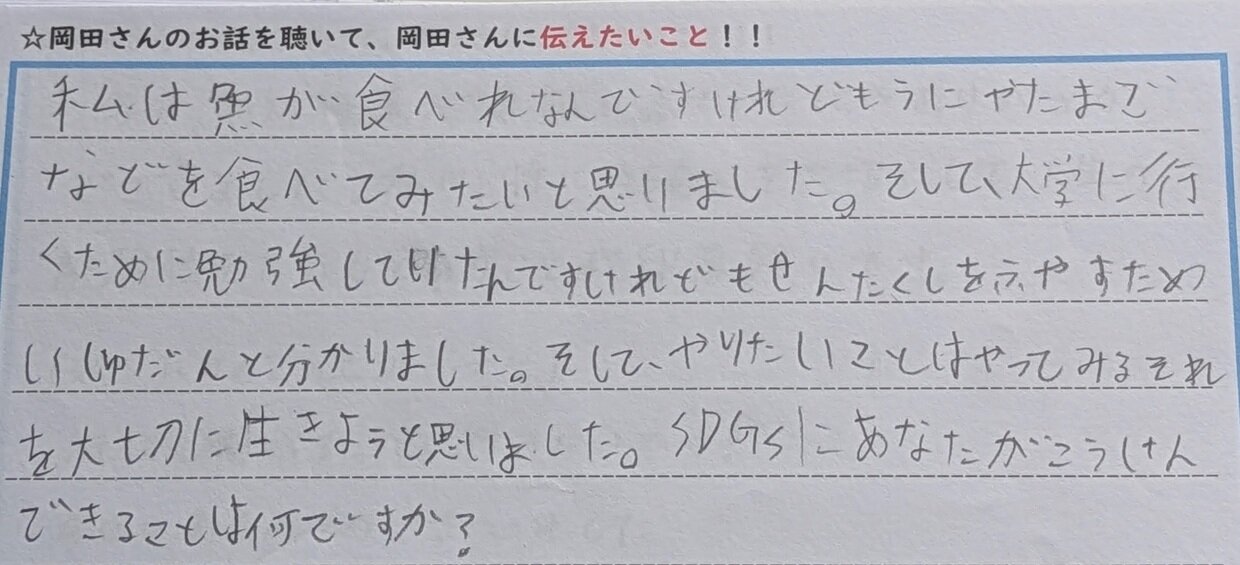 ☆岡田さんのお話を聴いて、岡田さんに伝えたいこと！！
私は魚が食べれなんですけれどもうにやたまご
などを食べてみたいと思りました。そして、大学に行
くために勉強していたんですけれどもせんたくしをふやすため
いしゅだんと分かりました。そして、やりたいことはやってみるそれ
を大切に生きようと思いました。SDGsにあなたがこうけん
できることは何ですか？